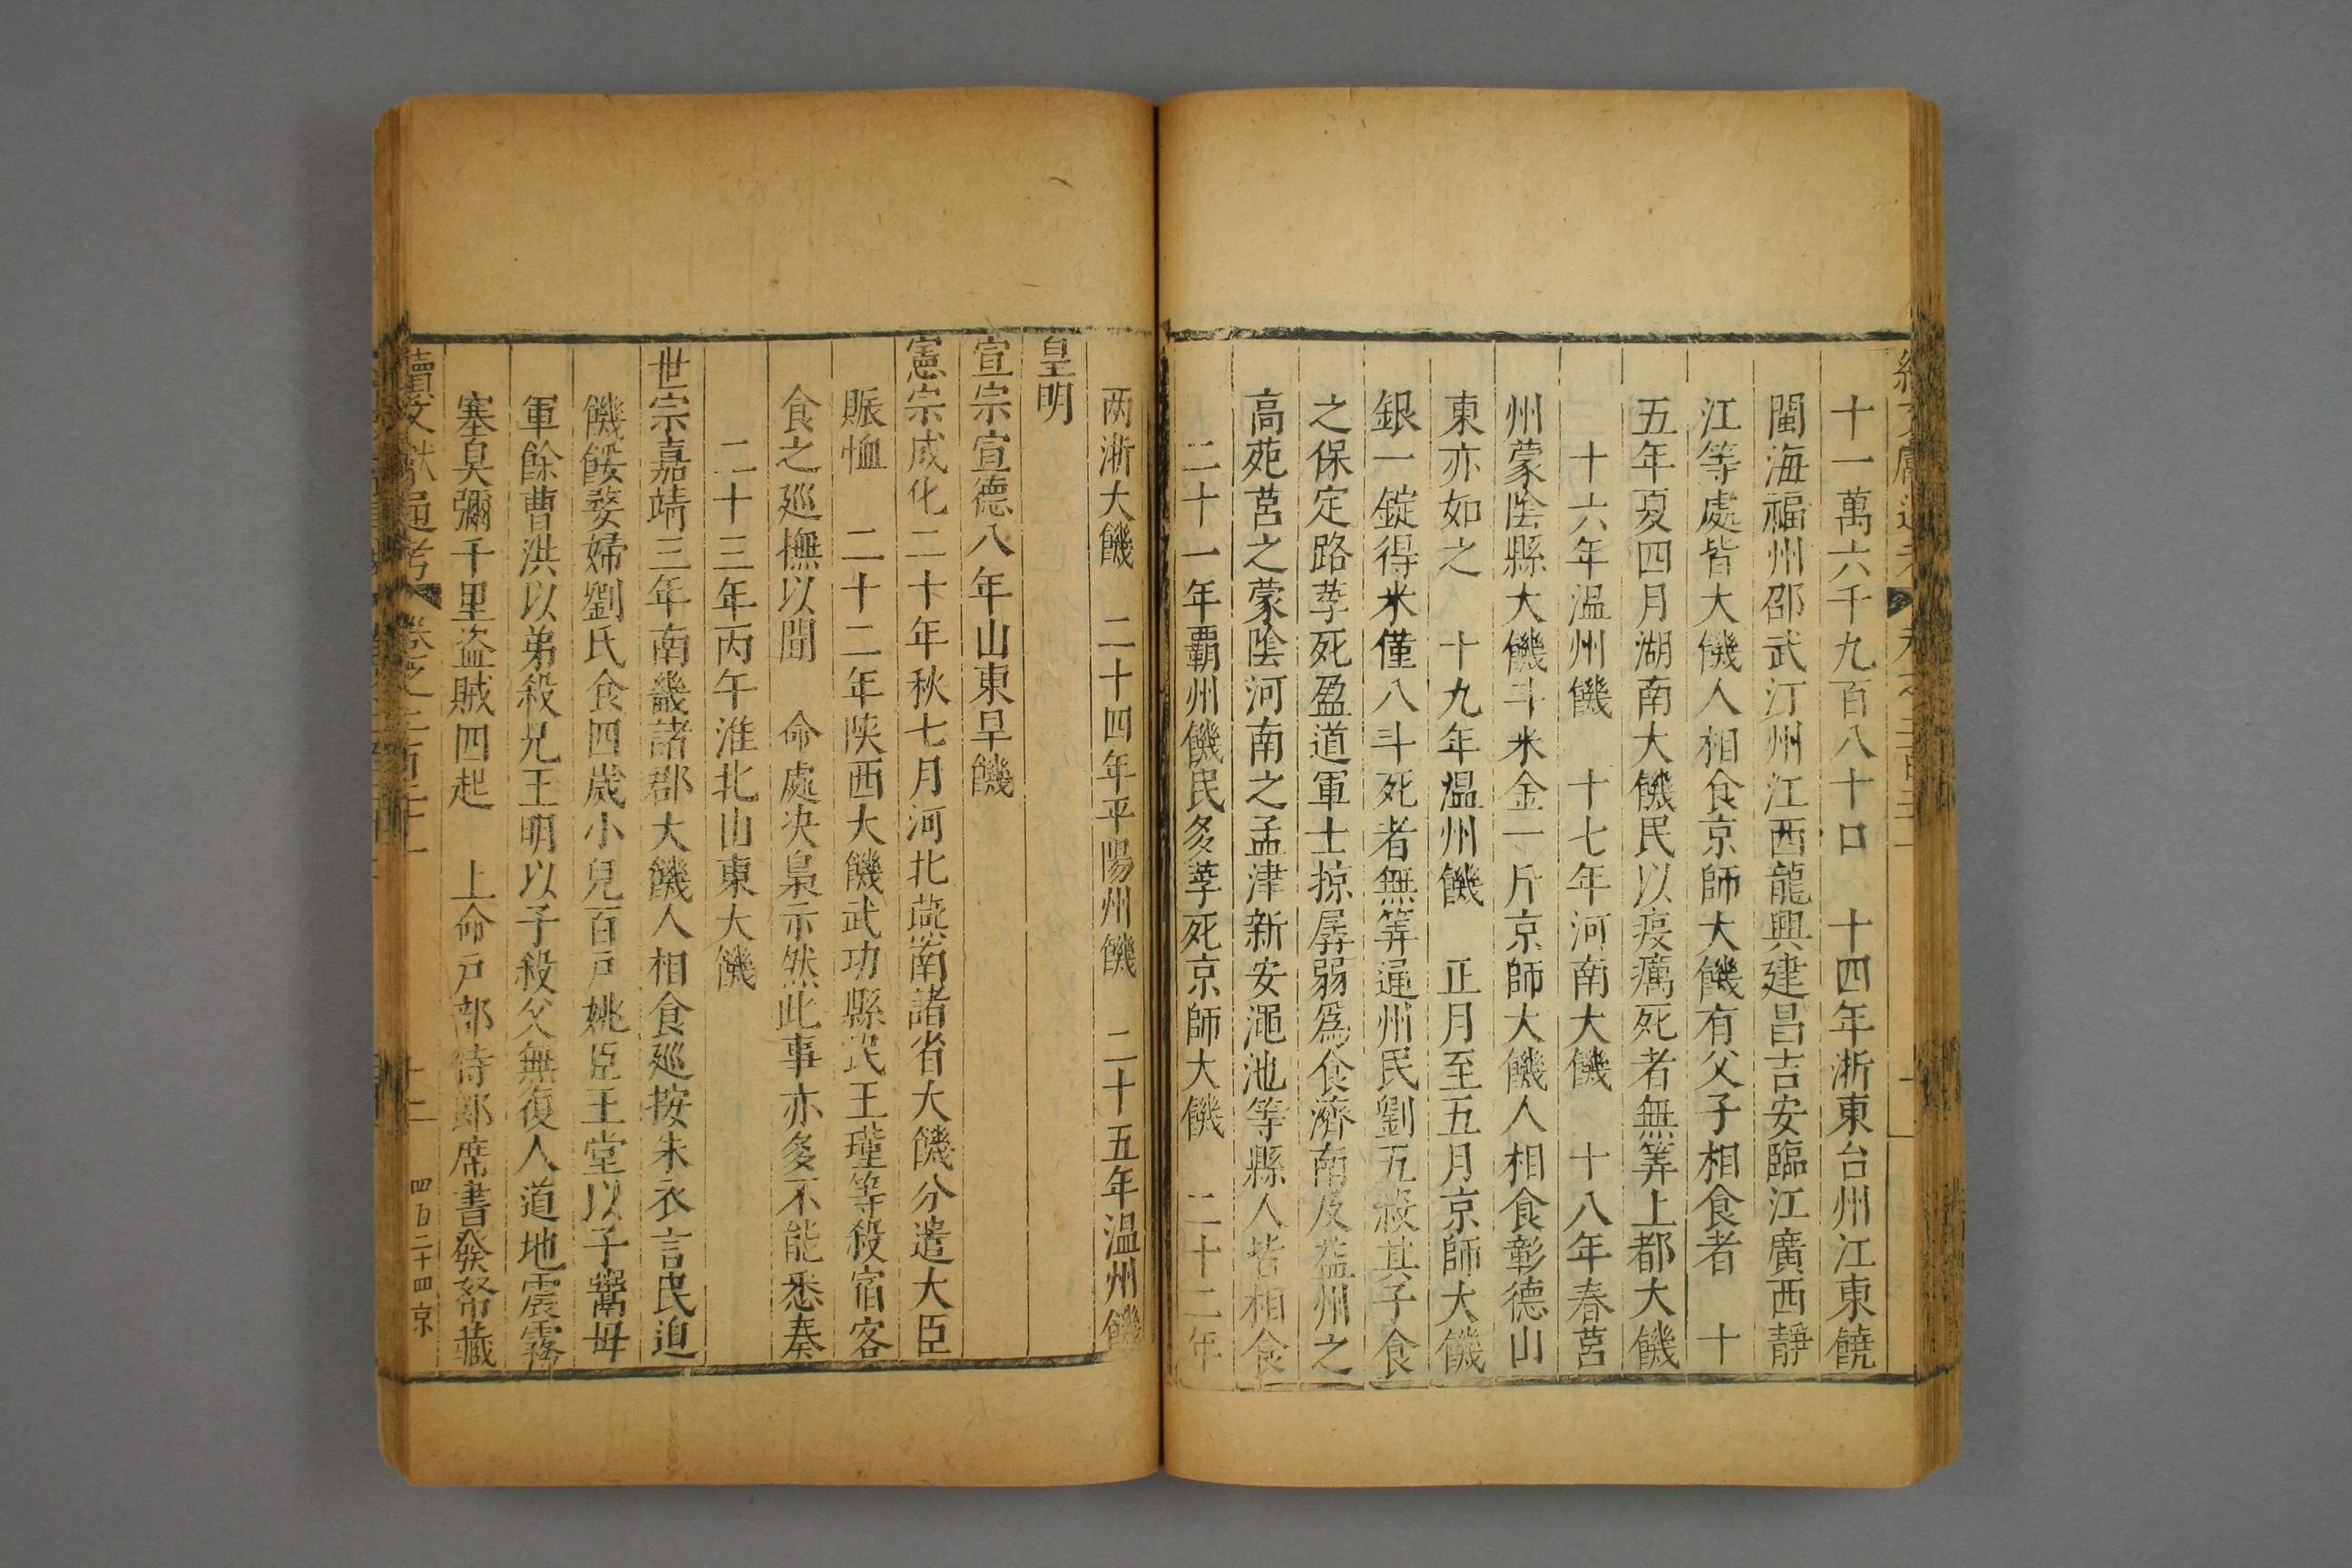 十一萬六千九百八十口　十四年浙東台州江東饒
閩海福州邵武汀州江西龍興建昌吉安臨江廣西靜
江等處皆大饑人相食京師大饑有父子相食者　十
五年夏四月湖南大饑民以疫癘死者無筭上都大饑
十六年温州饑　十七年河南大饑　十八年春莒
州蒙陰縣大饑斗米金一斤京師大饑人相食彰德山
東亦如之　十九年温州饑　正月至五月京師大饑
銀一錠得米僅八斗死者無筭通州民劉五殺其子食
之保定路莩死盈道軍士掠孱弱爲食濟南及益州之
高苑莒之蒙陰河南之孟津新安澠池等縣人皆相食
二十一年覇州饑民多莩死京師大饑　二十二年
两浙大饑　二十四年平陽州饑　二十五年温州饑
皇明
宣宗宣德八年山東旱饑
憲宗成化二十年秋七月河北燕南諸省大饑分遣大臣
賑恤　二十二年陕西大饑武功縣民王瑾等殺宿客
食之廵撫以聞　命處决梟示然此事亦多不能悉奏
二十三年丙午淮北山東大饑
世宗嘉靖三年南畿諸郡大饑人相食廵按朱衣言民迫
饑餒婺婦劉氏食四嵗小兒百戸姚臣王堂以子鬻毋
軍餘曹洪以弟殺兄王明以子殺父無復人道地震霧
塞臭彌千里盗賊四起　上命戸部侍郎席書發帑藏
續文獻通考　卷之二百二十一　十二　四百二十四京